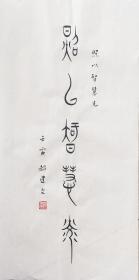 照以智慧光
照以智慧光
壬寅